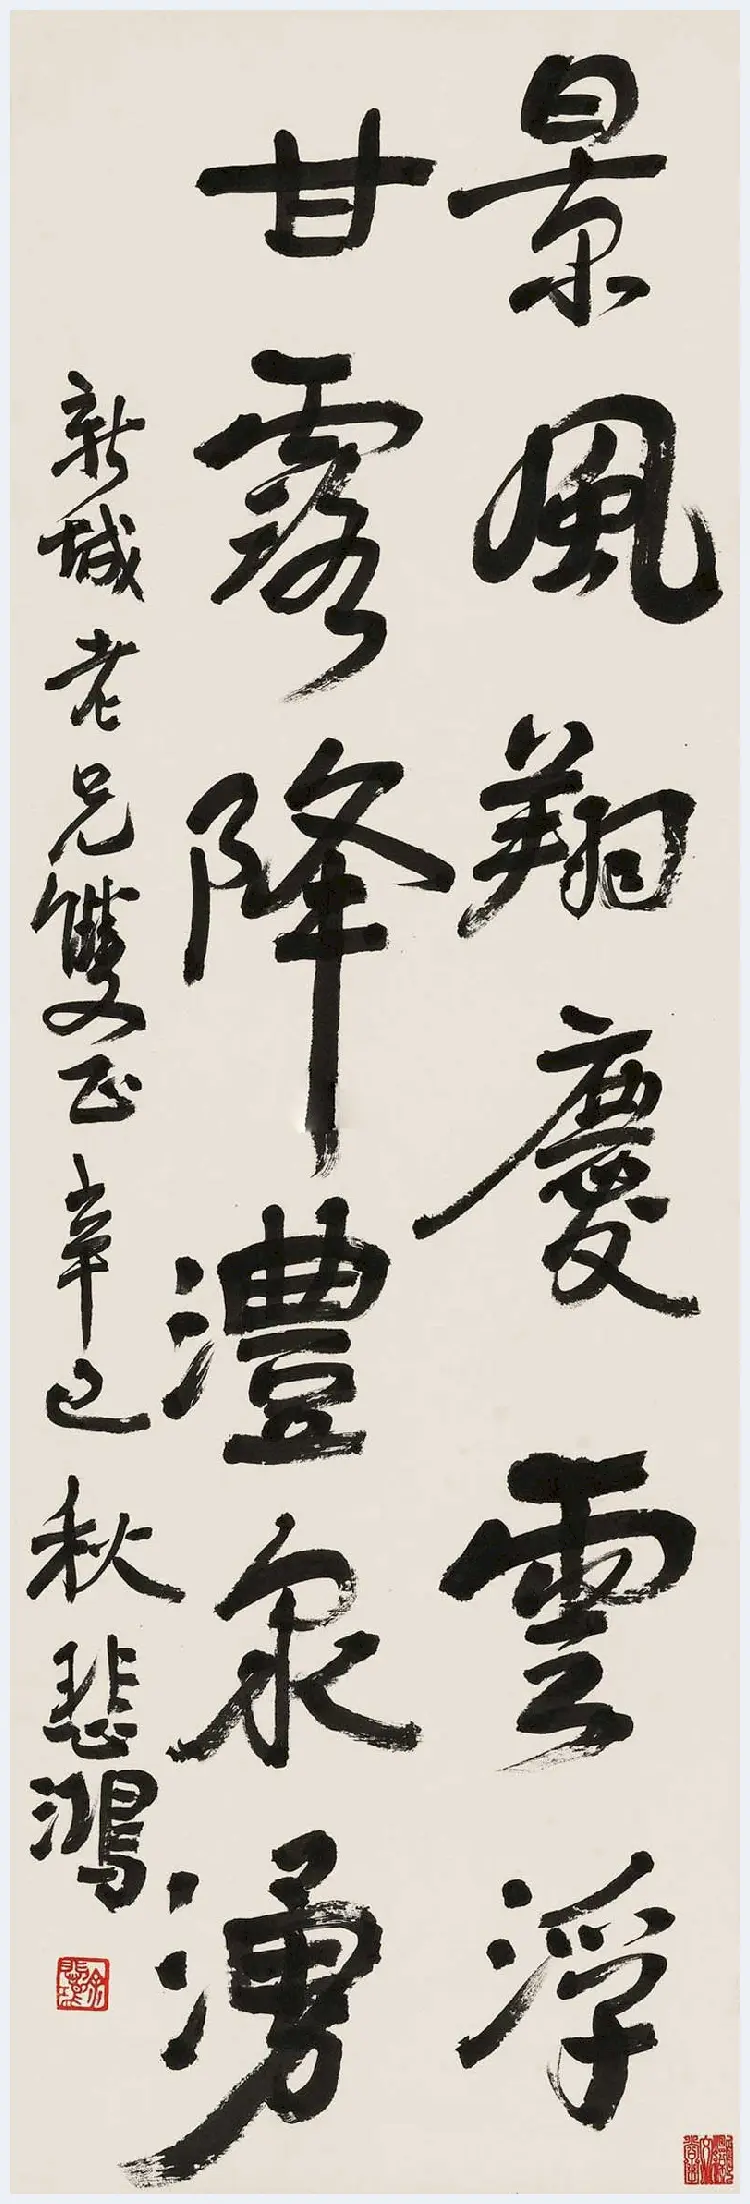 景風翔慶雲浮
甘露降澧泉湧
新城老兄雙正辛巳秋悲鴻